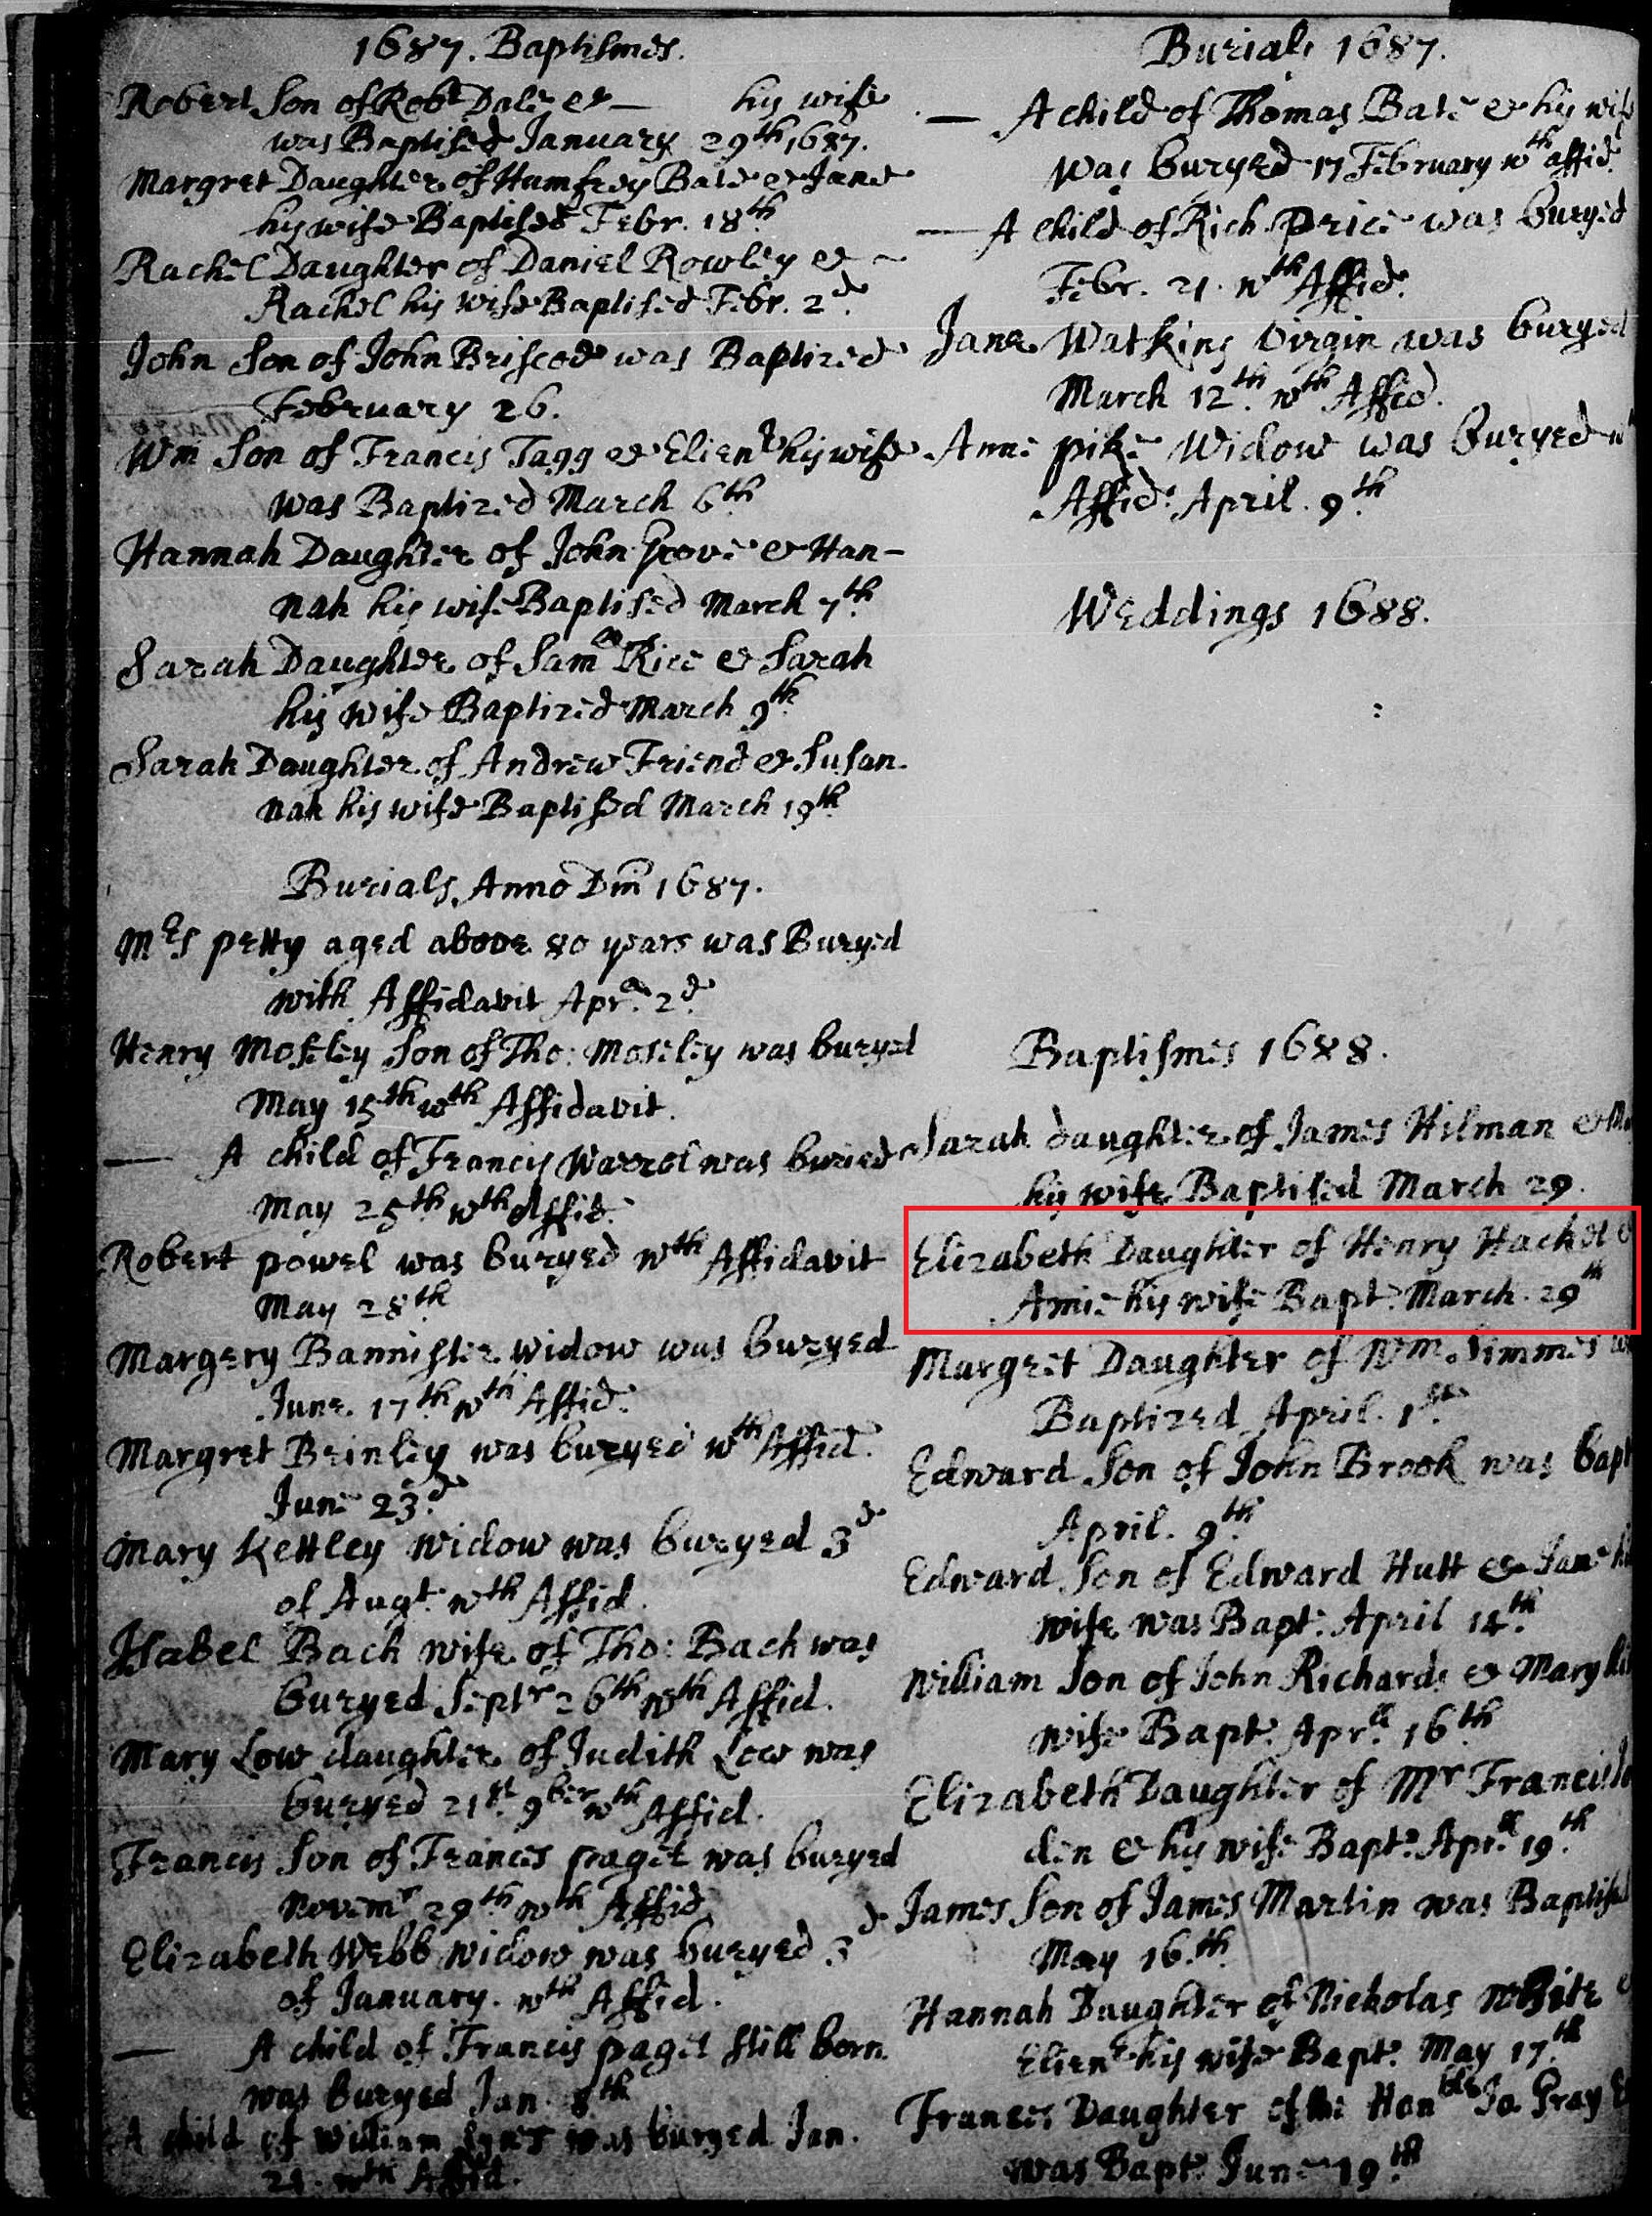 1687. Baptismes.
Robert Son of Robt Dale & — his wife
was Baptised January 29th 1687.
Margret Daughter of Humfrey Bate & Jane
his wife Baptised Febr. 18th
Rachel Daughter of Daniel Rowley & ~
Rachel his wife Baptised Febr. 2d.
John Son of John Briscoe was Baptized
February 26.
Wm Son of Francis Tagg & Elienr his wife
was Baptized March 6th
Hannah Daughter of John Grove & Han-
nah his wife Baptised March 7th
Sarah Daughter of Samll Rice & Sarah
his wife Baptized March 9th
Sarah Daughter of Andrew Friend & Susan-
nah his wife Baptised March 19th
Burials Anno Dm 1687.
Mrs petty aged above 80 years was Buryed
with Affidavit Apr. 2d
Henry Moseley Son of Tho: Moseley was buryed
May 15th wth Affidavit.
— A child of Francis Warrol was buried
May 25th wth Affid.
Robert powel was buryed wth Affidavit
May 28th
Margery Bannister widow was buryed
June 17th wth Affid.
Margret Brinley was buryed wth Affid.
June 23d
Mary Kettley widow was buryed 3d
of Augt wth Affid.
Isabel Bach wife of Tho: Bach was
buryed Septr 26th wth Affid.
Mary Low daughter of Judith Low was
buryed 21st 9ber wth Affid.
Francis Son of Francis paget was buryed
Novemr 29th wth Affid
Elizabeth Webb widow was buryed 3d
of January. wth Affid.
— A child of Francis paget still born
was buryed Jan. 8th
A child of William was buryed Jan.
21. wth Affid.
Burials 1687.
— A child of Thomas Bate & his wife
was buryed 17 February wth affid.
— A child of Rich. Price was buryed
Febr. 21. wth Affid.
Jane Watkins Virgin was buryed
March 12th. wth Affid.
Anne pike Widow was buryed wth
Affid. April. 9th
Weddings 1688.
Baptismes 1688.
Sarah daughter of James Hilman &
his wife Baptised March 29.
Elizabeth Daughter of Henry Hachet &
Amie his wife Bapt. March. 29th
Margret Daughter of Wm. Simmes was
Baptized April. 1st
Edward Son of John Brook was bapt
April. 9th
Edward Son of Edward Hutt & Jane his
wife was Bapt. April 14th
William Son of John Richards & Mary his
wife Bapt. Aprll 16th
Elizabeth Daughter of Mr Francis
den & his wife Bapt. Aprll 19th
James Son of James Martin was Baptised
May 16th
Hannah Daughter of Nicholas White &
Elienr his wife Bapt. May 17th
Frances Daughter of the Honble Jo. Gray Esq
was Bapt. June 19th